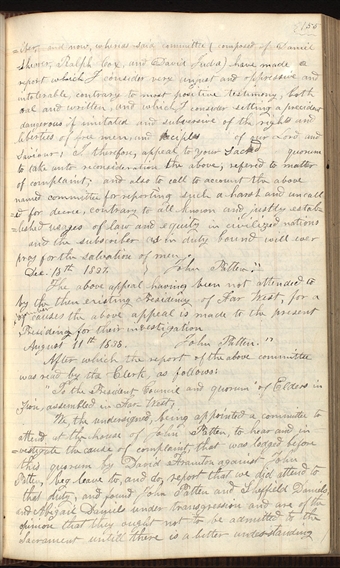 155
-ber, and now, whereas said committee (composed of Daniel
Shearer, Ralph Cox, and David Judia) have made a
report which I consider very unjust and oppressive and
intolerable contrary to most positive testimony, both
oral and written, and which I consider setting a precident
dangerous if imitated and subvesive of the rights and
liberties of free men, and deciples of our Lord and
Saviour; I therefore, appeal to your sacred quorum
to take into reconsideration the above, refered to matter
of complaint; and also to call to account the above
named committee for reporting such a harsh and uncall
-ed for decree, contrary to all known and justly estab
-lished usages of law and equity in civilized nations
and the subscriber as in duty bound will ever
pray for the salvation of men,
Dec. 13th 1837. } John Patten."
The above appeal having been not attended to
by the then existing Presidency of Far West, for
causes the above appeal is made to the present
Presiding for their investigation
August 11th 1838. John Patten."
After which the report of the above committee
was read by the Clerk, as follows:
"To the President Council and quorum of Elders in
Zion, assembled in Far West;
We, the undersigned, being appointed a commitee to
attend at the house of John Patten, to hear and in
-vestigate the cause of complaint, that was lodged before
this quorum by David Frampton against John
Patten, beg leave to, and do, report that we did attend to
that duty, and found John Patten and Sheffield Daniels,
and Abigail Daniels under transgression and are of the
opinion that they ought not to be admitted to the
Sacrament untill there is a better understanding